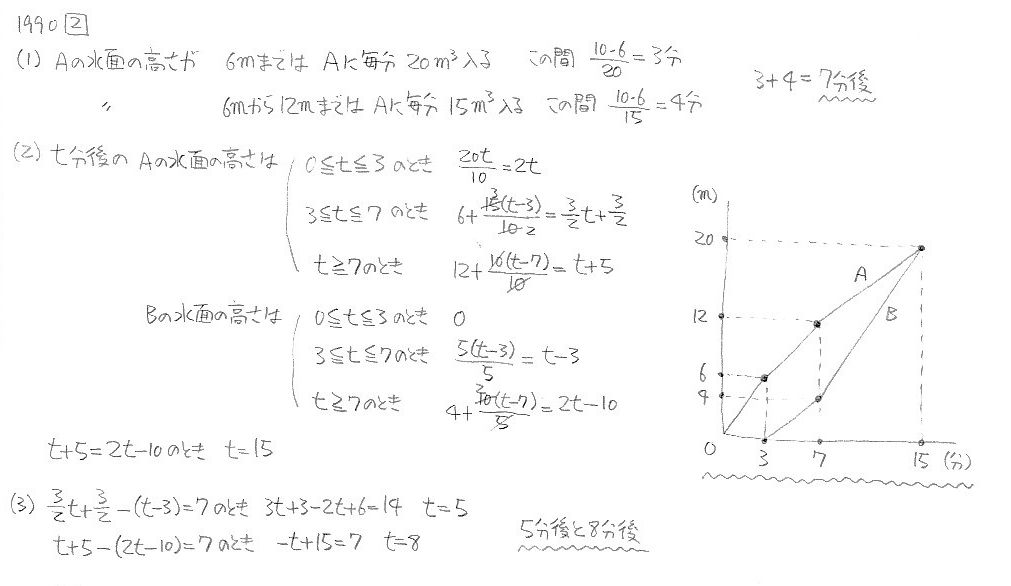 1990 2
(1) Aの水面の高さが 6mまでは Aに毎分20m³入る この間 10・6/20=3分
〃 6mから12mまでは Aに毎分15m³入る この間 10・6/15=4分
3+4=7分後
(2) t分後の Aの水面の高さは 0≦t≦3のとき 20t/10=2t
3≦t≦7のとき 6+15(t-3)/10=3/2t+3/2
t≧7のとき 12+10(t-7)/10=t+5
Bの水面の高さは 0≦t≦3のとき 0
3≦t≦7のとき 5(t-3)/5=t-3
t≧7のとき 4+10(t-7)/5=2t-10
t+5=2t-10のとき t=15
(m)
20
12
6
4
0
3
7
15
(分)
A
B
(3) 3/2t+3/2-(t-3)=7のとき 3t+3-2t+6=14 t=5
t+5-(2t-10)=7のとき -t+15=7 t=8
5分後と8分後